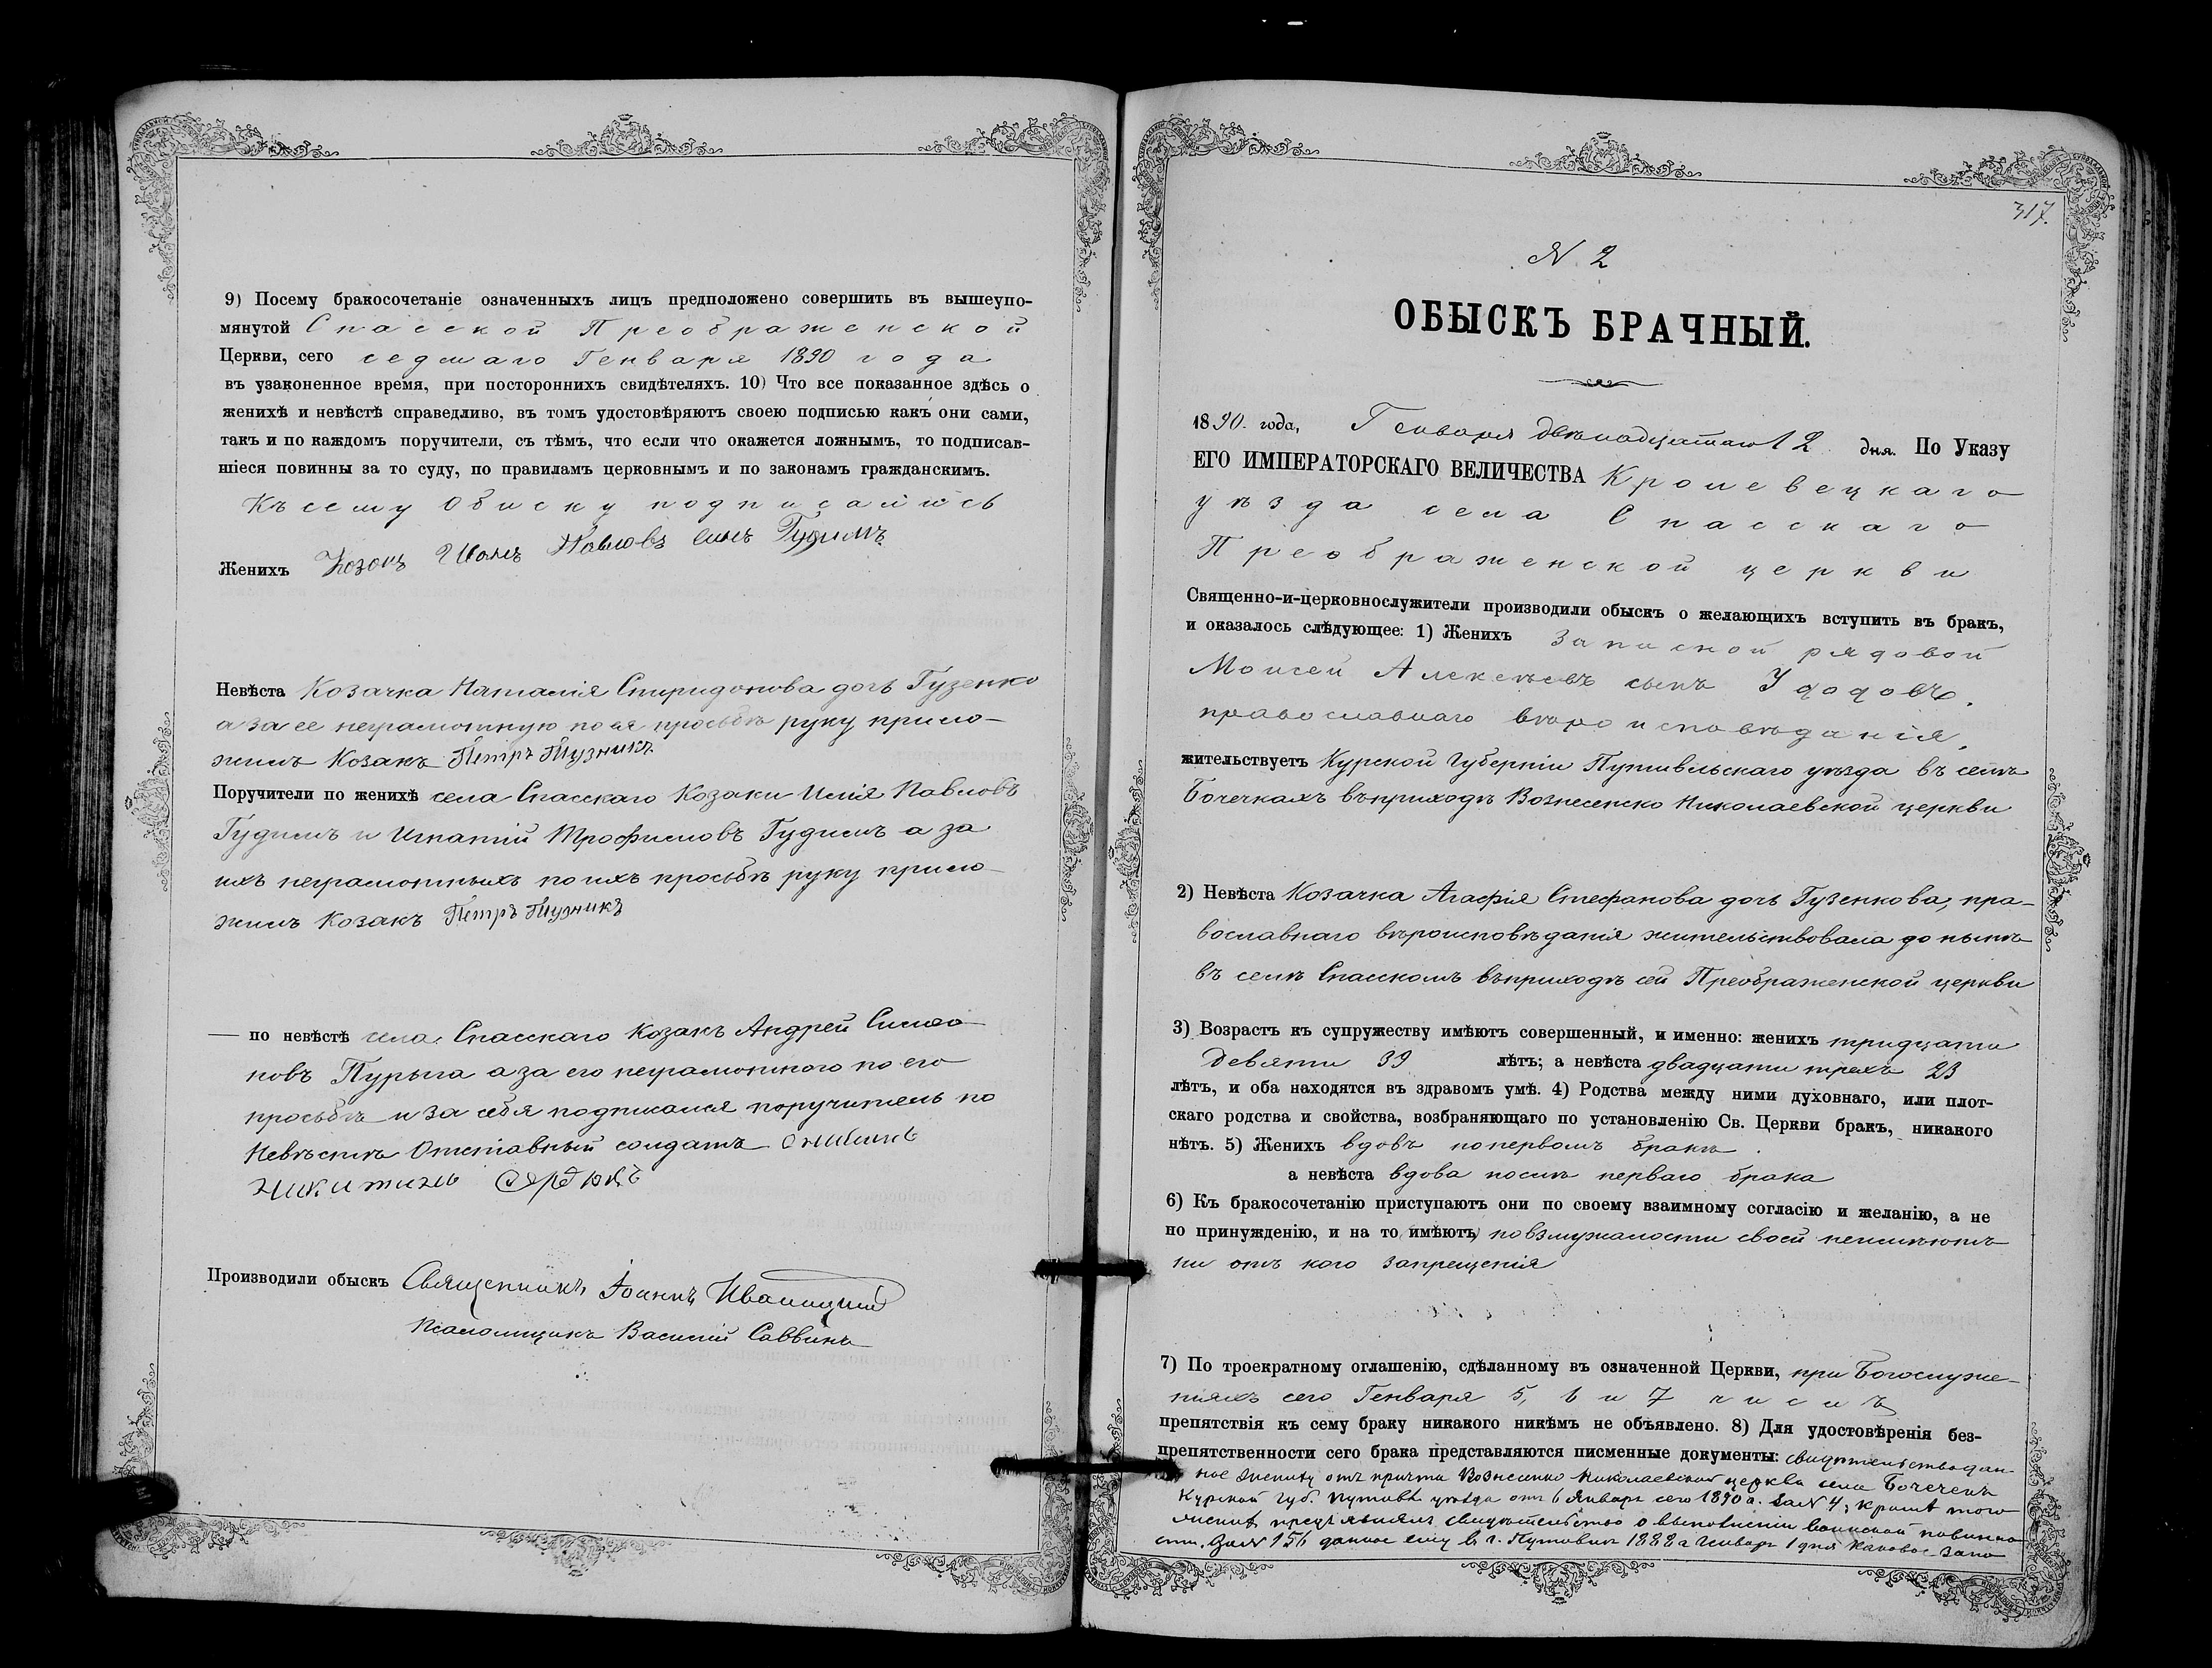 9) Посему бракосочетаніе означенныхъ лицъ предположено совершить въ вышеупо-
мянутой Спасской Преображенской
Церкви, сего седмаго Генваря 1890 года
въ узаконенное время, при постороннихъ свидѣтеляхъ. 10) Что все показанное здѣсь о
женихѣ и невѣстѣ справедливо, въ томъ удостовѣряютъ своею подписью какъ они сами,
такъ и по каждомъ поручители, съ тѣмъ, что если что окажется ложнымъ, то подписав-
шіеся повинны за то суду, по правиламъ церковнымъ и по законамъ гражданскимъ.
Къ сему Обиску подписались
Женихъ Козакъ Павловъ сынъ Гудимъ
Невѣста Козачка Наталія Спиридонова дочь Гузенко
а за ее неграмотную по ея просьбѣ руку прило-
жилъ Козакъ Петръ
Поручители по женихѣ села Спасскаго Козаки Илія Павловъ
Гудимъ и Игнатій Трофимовъ Гудимъ а за
ихъ неграмотныхъ по ихъ просьбѣ руку прило-
жилъ Козакъ Петръ
— по невѣстѣ села Спасскаго Козакъ Андрей Симео-
новъ Пурыга а за его неграмотного по его
просьбѣ и за себя подписался поручитель по
Невѣстѣ Отставный солдатъ
Производили обыскъ Священникъ Іоаннъ Иваницкій
Псаломщикъ Василій Саввинъ
317.
N 2
ОБЫСКЪ БРАЧНЫЙ.
1890. года, Генваря двѣнадцатаго 12 дня. По Указу
ЕГО ИМПЕРАТОРСКАГО ВЕЛИЧЕСТВА Кролевецкаго
уѣзда села Спасскаго
Преображенской церкви
Священно-и-церковнослужители производили обыскъ о желающихъ вступить въ бракъ,
и оказалось слѣдующее: 1) Женихъ Запасной рядовой
Моисей Алексѣевъ сынъ Удодовъ,
православнаго вѣроисповѣданія,
жительствуетъ Курской Губерніи Путивльскаго уѣзда въ селѣ
Бочечкахъ въ приходѣ Вознесенско Николаевской церкви
2) Невѣста Козачка Агафія Стефанова дочь Гузенкова, пра-
вославнаго вѣроисповѣданія жительствовала до нынѣ
въ селѣ Спасскомъ въ приходѣ сей Преображенской церкви
3) Возрастъ къ супружеству имѣютъ совершенный, и именно: женихъ тридцати
девяти 39 лѣтъ; а невѣста двадцати трехъ 23
лѣтъ, и оба находятся въ здравомъ умѣ. 4) Родства между ними духовнаго, или плот-
скаго родства и свойства, возбраняющаго по установленію Св. Церкви бракъ, никакого
нѣтъ. 5) Женихъ вдовъ по первомъ бракѣ.
а невѣста вдова послѣ перваго брака
6) Къ бракосочетанію приступаютъ они по своему взаимному согласію и желанію, а не
по принужденію, и на то (имѣютъ) по возмужалости своей неимѣютъ
ни отъ кого запрещенія
7) По троекратному оглашенію, сдѣланному въ означенной Церкви, при Богослуже-
ніяхъ сего Генваря 5, 6 и 7 числъ
препятствія къ сему браку никакого никѣмъ не объявлено. 8) Для удостовѣренія без-
препятственности сего брака представляются писменные документы: свидѣтельство дан-
ное Жениху отъ причта Вознесенко Николаевской церкви села Бочечекъ
Курской Губ. Путивл. уѣзда отъ 6 Января сего 1890 г. За N 4; кромѣ того
женихъ предъявилъ свидѣтельство о выполненіи воинской повинно-
сти. За N 156 данное ему въ г. Путивлѣ 1888 г. Января 1 дня каковое запа